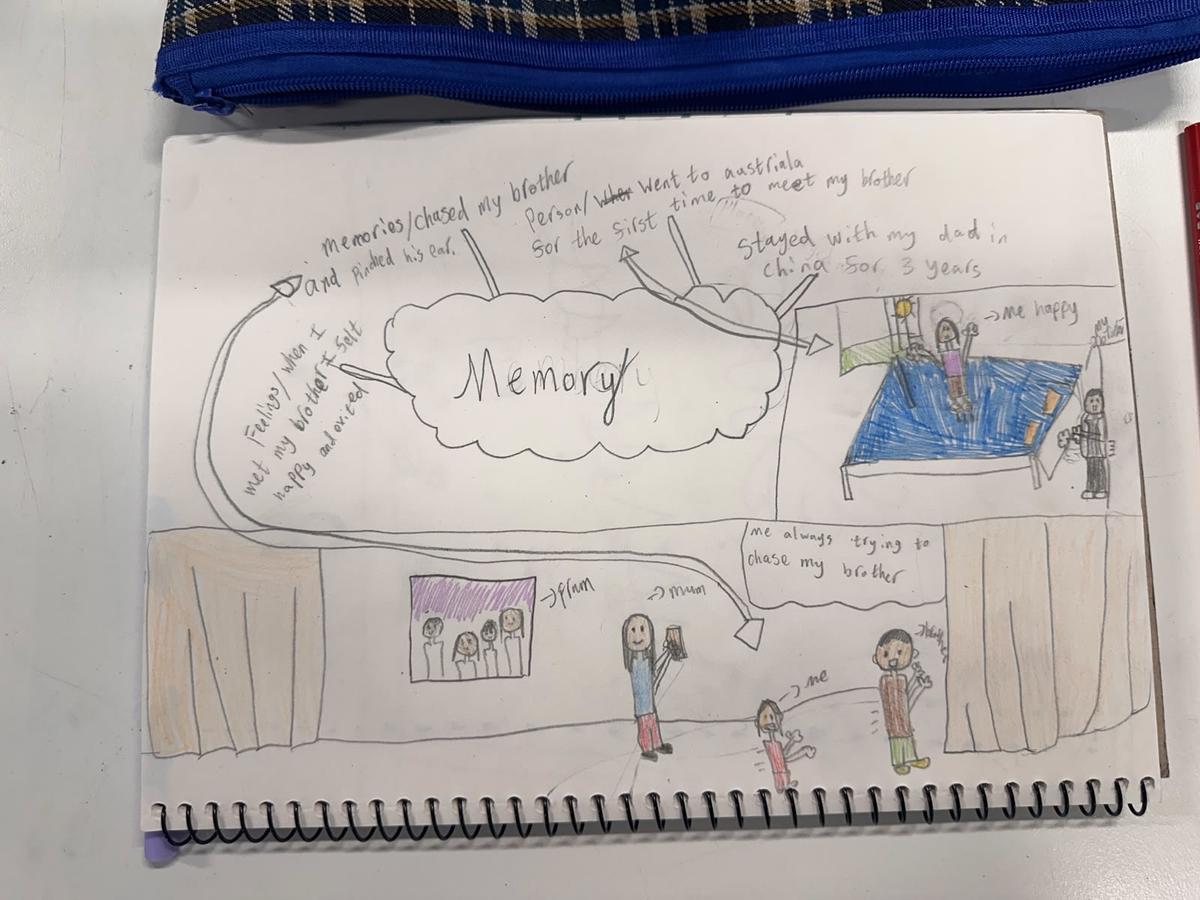 memories/chased my brother
and pinched his ear.
Person/when went to austriala
for the first time to meet my brother
Stayed with my dad in
china for 3 years
Feelings/when I
met my brother I felt
happy and exited
Memory
me happy
my
me always trying to
chase my brother
mum
me
brother